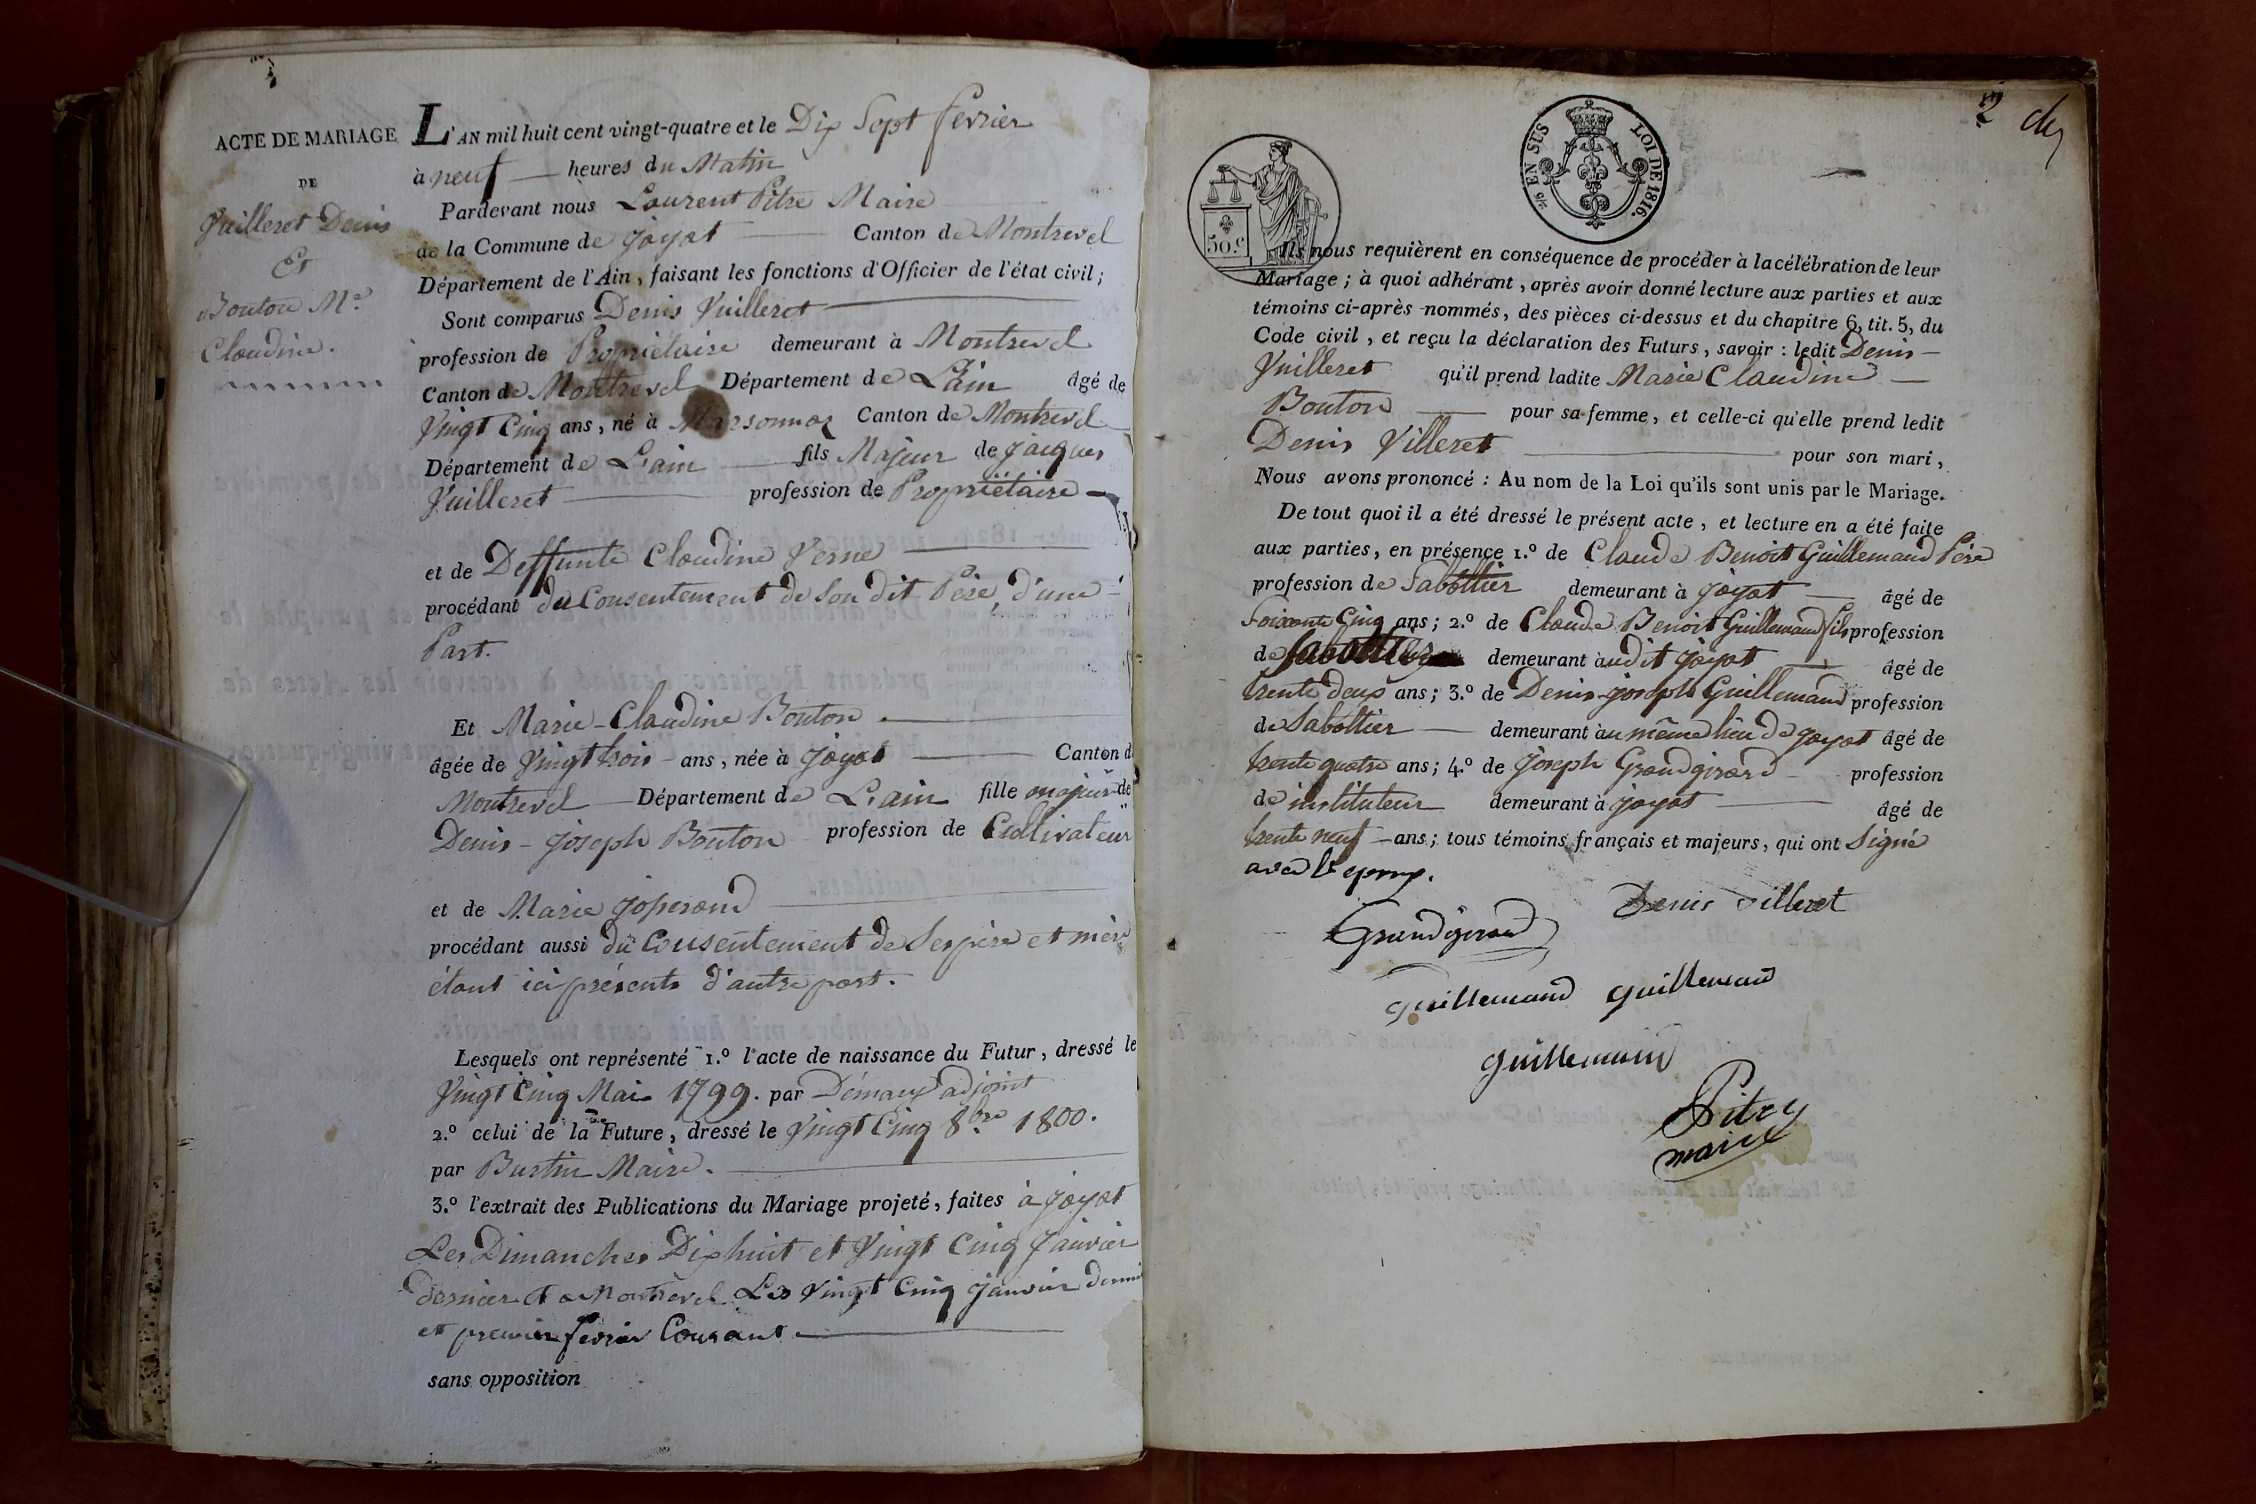 ACTE DE MARIAGE
DE
Vuilleret Denis
Et
Bouton Me
Claudine.
L'AN mil huit cent vingt-quatre et le Dix Sept fevrier
à neuf heures du Matin
Pardevant nous Laurent Pitre Maire
de la Commune de jayat Canton de Montrevel
Département de l'Ain, faisant les fonctions d'Officier de l'état civil;
Sont comparus Denis Vuilleret
profession de Propriétaire demeurant à Montrevel
Canton de Montrevel Département de L'ain âgé de
Vingt Cinq ans, né à Marsonnas Canton de Montrevel
Département de L'ain fils Majeur de jacques
Vuilleret profession de Propriétaire
et de Deffunte Claudine Verne
procédant du Consentement de Son dit Père, d'une
Part.
Et Marie-Claudine Bouton
âgée de Vingt trois ans, née à jayat Canton d
Montrevel Département de L'ain fille majeur de
Denis-joseph Bouton profession de Cultivateur
et de Marie josserand
procédant aussi du Consentement de Ses père et mère
étant ici présents d'autre part.
Lesquels ont représenté 1.º l'acte de naissance du Futur, dressé le
Vingt Cinq Mai 1799. par Démaux adjoint
2.º celui de la Future, dressé le Vingt Cinq 8bre 1800.
par Burtin Maire.
3.º l'extrait des Publications du Mariage projeté, faites à jayat
Les Dimanches Dix huit et Vingt Cinq janvier
dernier et a Montrevel Les Vingt Cinq janvier dernier
et premier fevrier Courant
sans opposition
2
50 c.
EN SUS
LOI DE 1816.
Ils nous requièrent en conséquence de procéder à la célébration de leur
Mariage; à quoi adhérant, après avoir donné lecture aux parties et aux
témoins ci-après nommés, des pièces ci-dessus et du chapitre 6, tit. 5, du
Code civil, et reçu la déclaration des Futurs, savoir: ledit Denis
Vuilleret qu'il prend ladite Marie Claudine
Bouton pour sa femme, et celle-ci qu'elle prend ledit
Denis Villeret pour son mari,
Nous avons prononcé: Au nom de la Loi qu'ils sont unis par le Mariage.
De tout quoi il a été dressé le présent acte, et lecture en a été faite
aux parties, en présence 1.º de Claude Benoit Guillemaud Père
profession de Sabottier demeurant à jayat âgé de
Soixante Cinq ans; 2.º de Claude Benoit Guillemaud fils profession
de Sabottier demeurant audit jayat âgé de
trente deux ans; 3.º de Denis-joseph Guillemaud profession
de Sabottier demeurant au même lieu de jayat âgé de
trente quatre ans; 4.º de joseph Grandgirard profession
de instituteur demeurant à jayat âgé de
trente neuf ans; tous témoins français et majeurs, qui ont Signé
avec l'epoux.
Denis Villeret
Grandgirard
guillemaud guillemaud
guillemaud
Pitre
maire